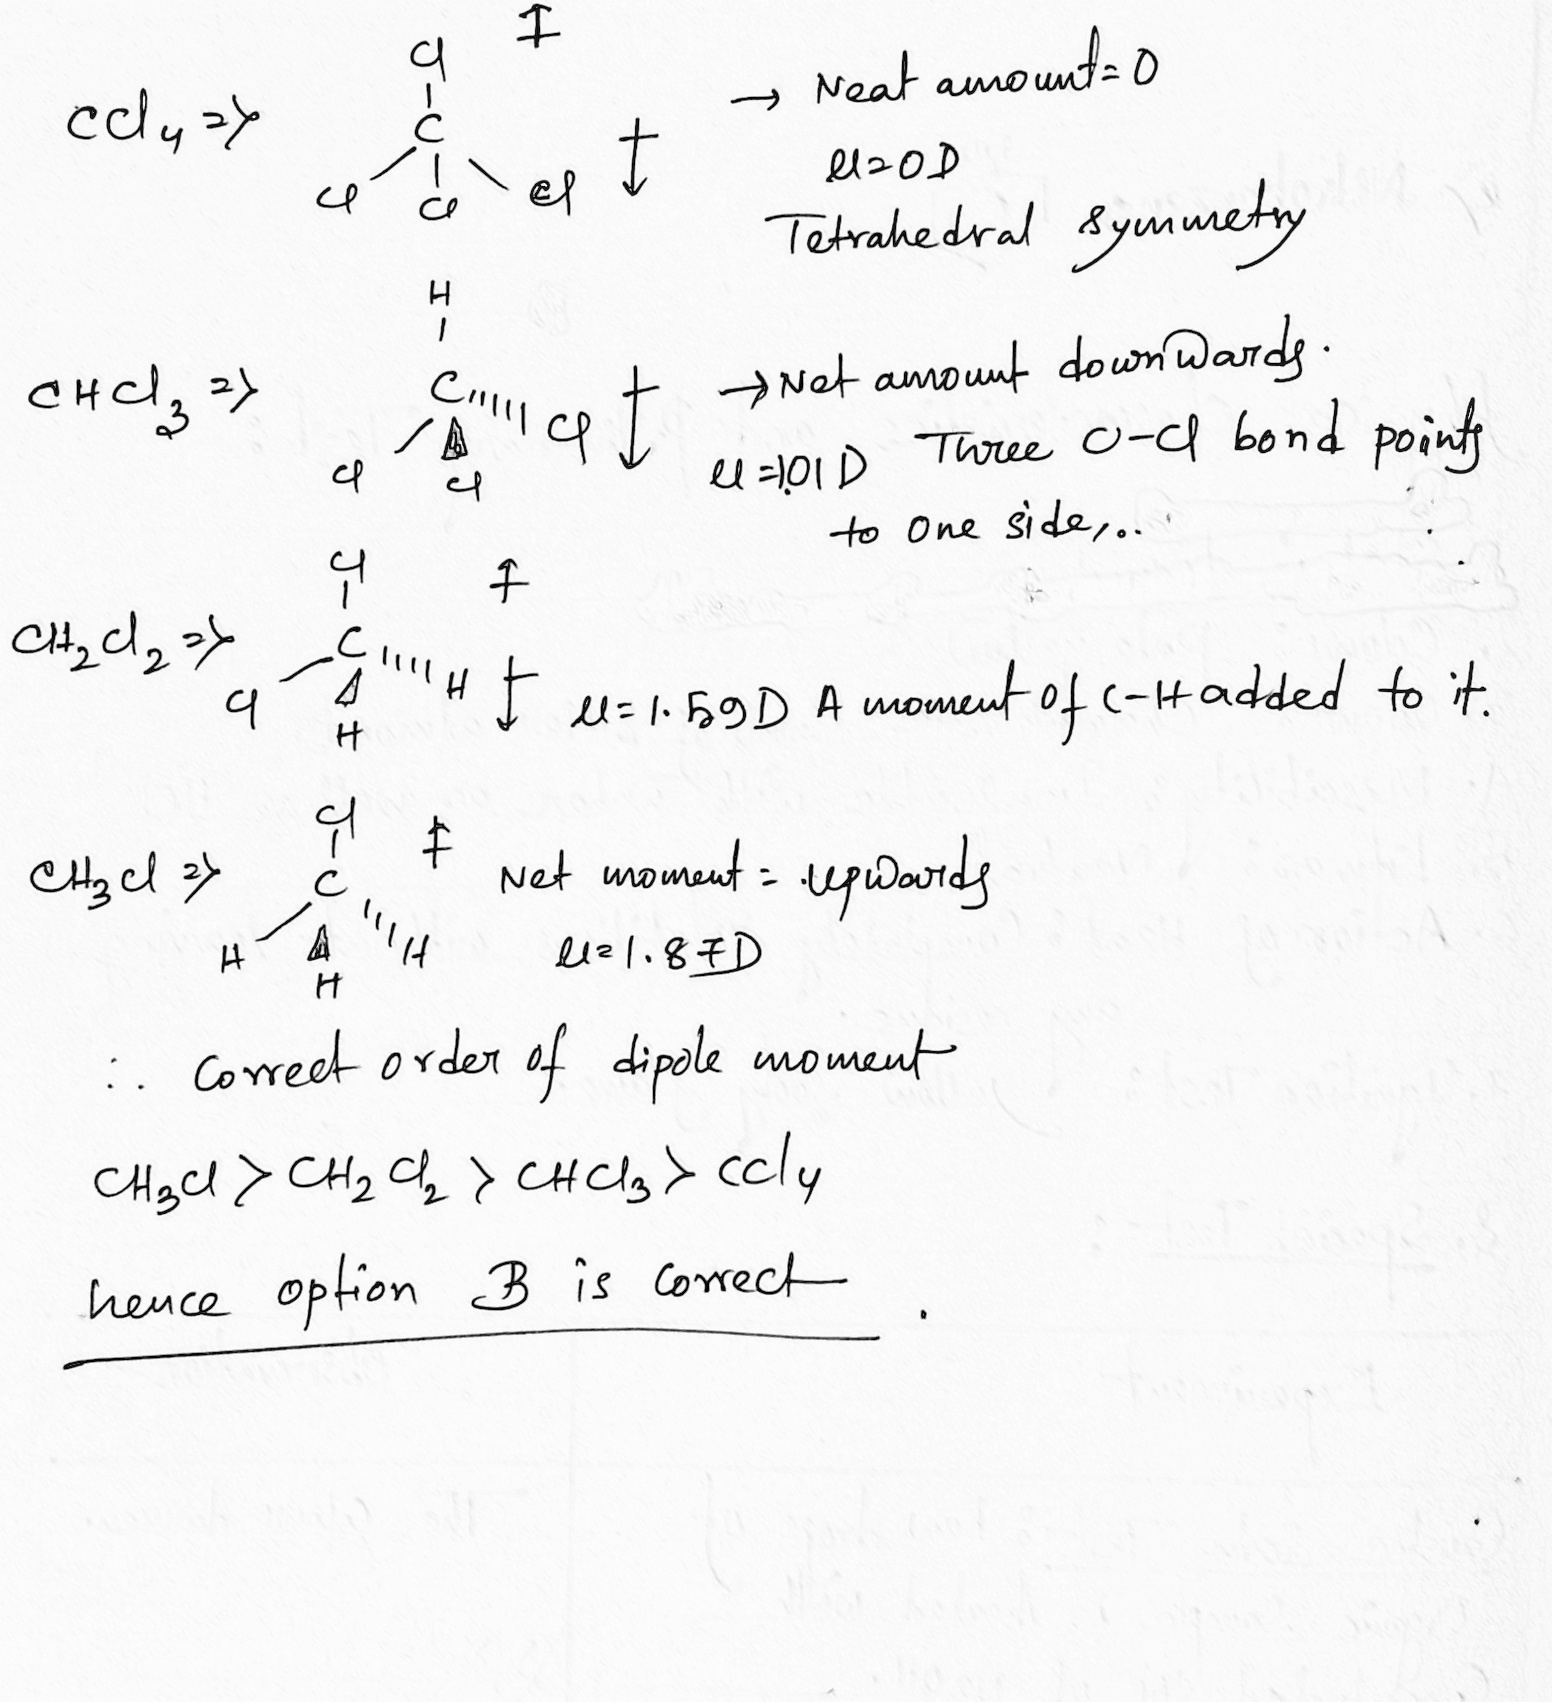 Cl
CCl4 => C → Neat amount = 0
Cl Cl Cl μ = 0 D
Tetrahedral symmetry
H
CHCl3 => C Cl → Net amount downwards.
Cl Cl μ = 1.01 D Three C-Cl bond points
to one side,..
Cl
CH2Cl2 => C H
Cl H μ = 1.59 D A moment of C-H added to it.
Cl
CH3Cl => C Net moment = upwards
H H H μ = 1.87 D
∴ Correct order of dipole moment
CH3Cl > CH2Cl2 > CHCl3 > CCl4
hence option B is correct.